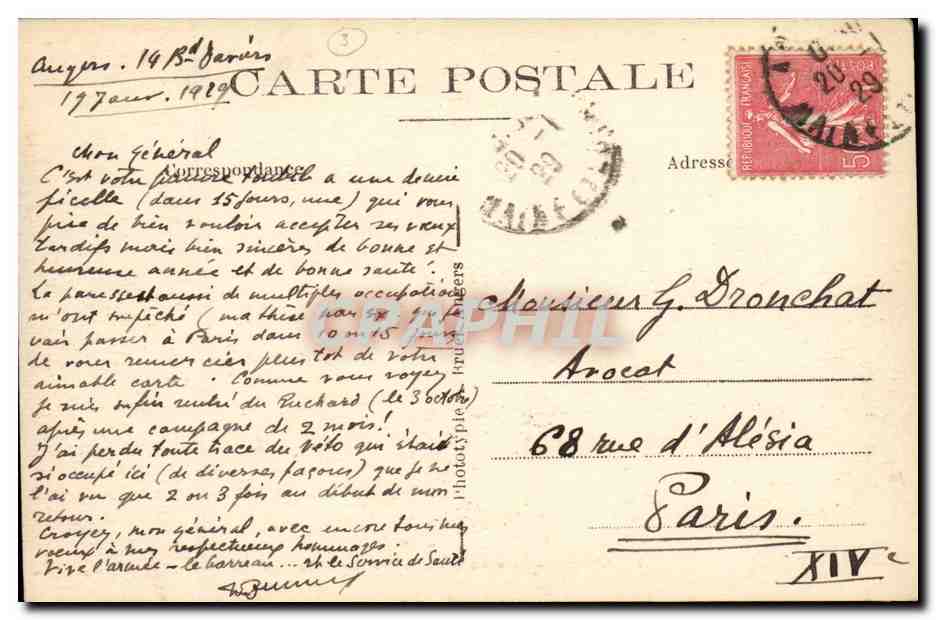 Angers. 14 Bd Daviers
19 Janv. 1929
3
CARTE POSTALE
Mon Général
Correspondance
Adresse
C'est votre pauvre a une demie
ficelle (dans 15 jours, une) qui vous
prie de bien vouloir accepter ses vœux
tardifs mais bien sincères de bonne et
heureuse année et de bonne santé.
La paresse et aussi de multiples occupations
m'ont empêché (ma thèse par ex que je
vais passer à Paris dans 10 ou 15 jours)
de vous remercier plus tôt de votre
aimable carte. Comme vous voyez
je suis enfin rentré du Ruchard (le 3 octobre)
après une campagne de 2 mois!
J'ai perdu toute trace du Véto qui était
si occupé ici (de diverses façons) que je ne
l'ai vu que 2 ou 3 fois au début de mon
retour.
Croyez, mon général, avec encore tous mes
vœux à mes respectueux hommages.
Vive l'armée - le barreau... et le Service de Santé
Phototypie Bruel Angers
REPUBLIQUE FRANÇAISE
POSTES
20 - 1
29
MAINE
20 - 1
29
MAINE
CPAPHIL
Monsieur G. Dronchat
Avocat
68 rue d'Alésia
Paris.
XIVe